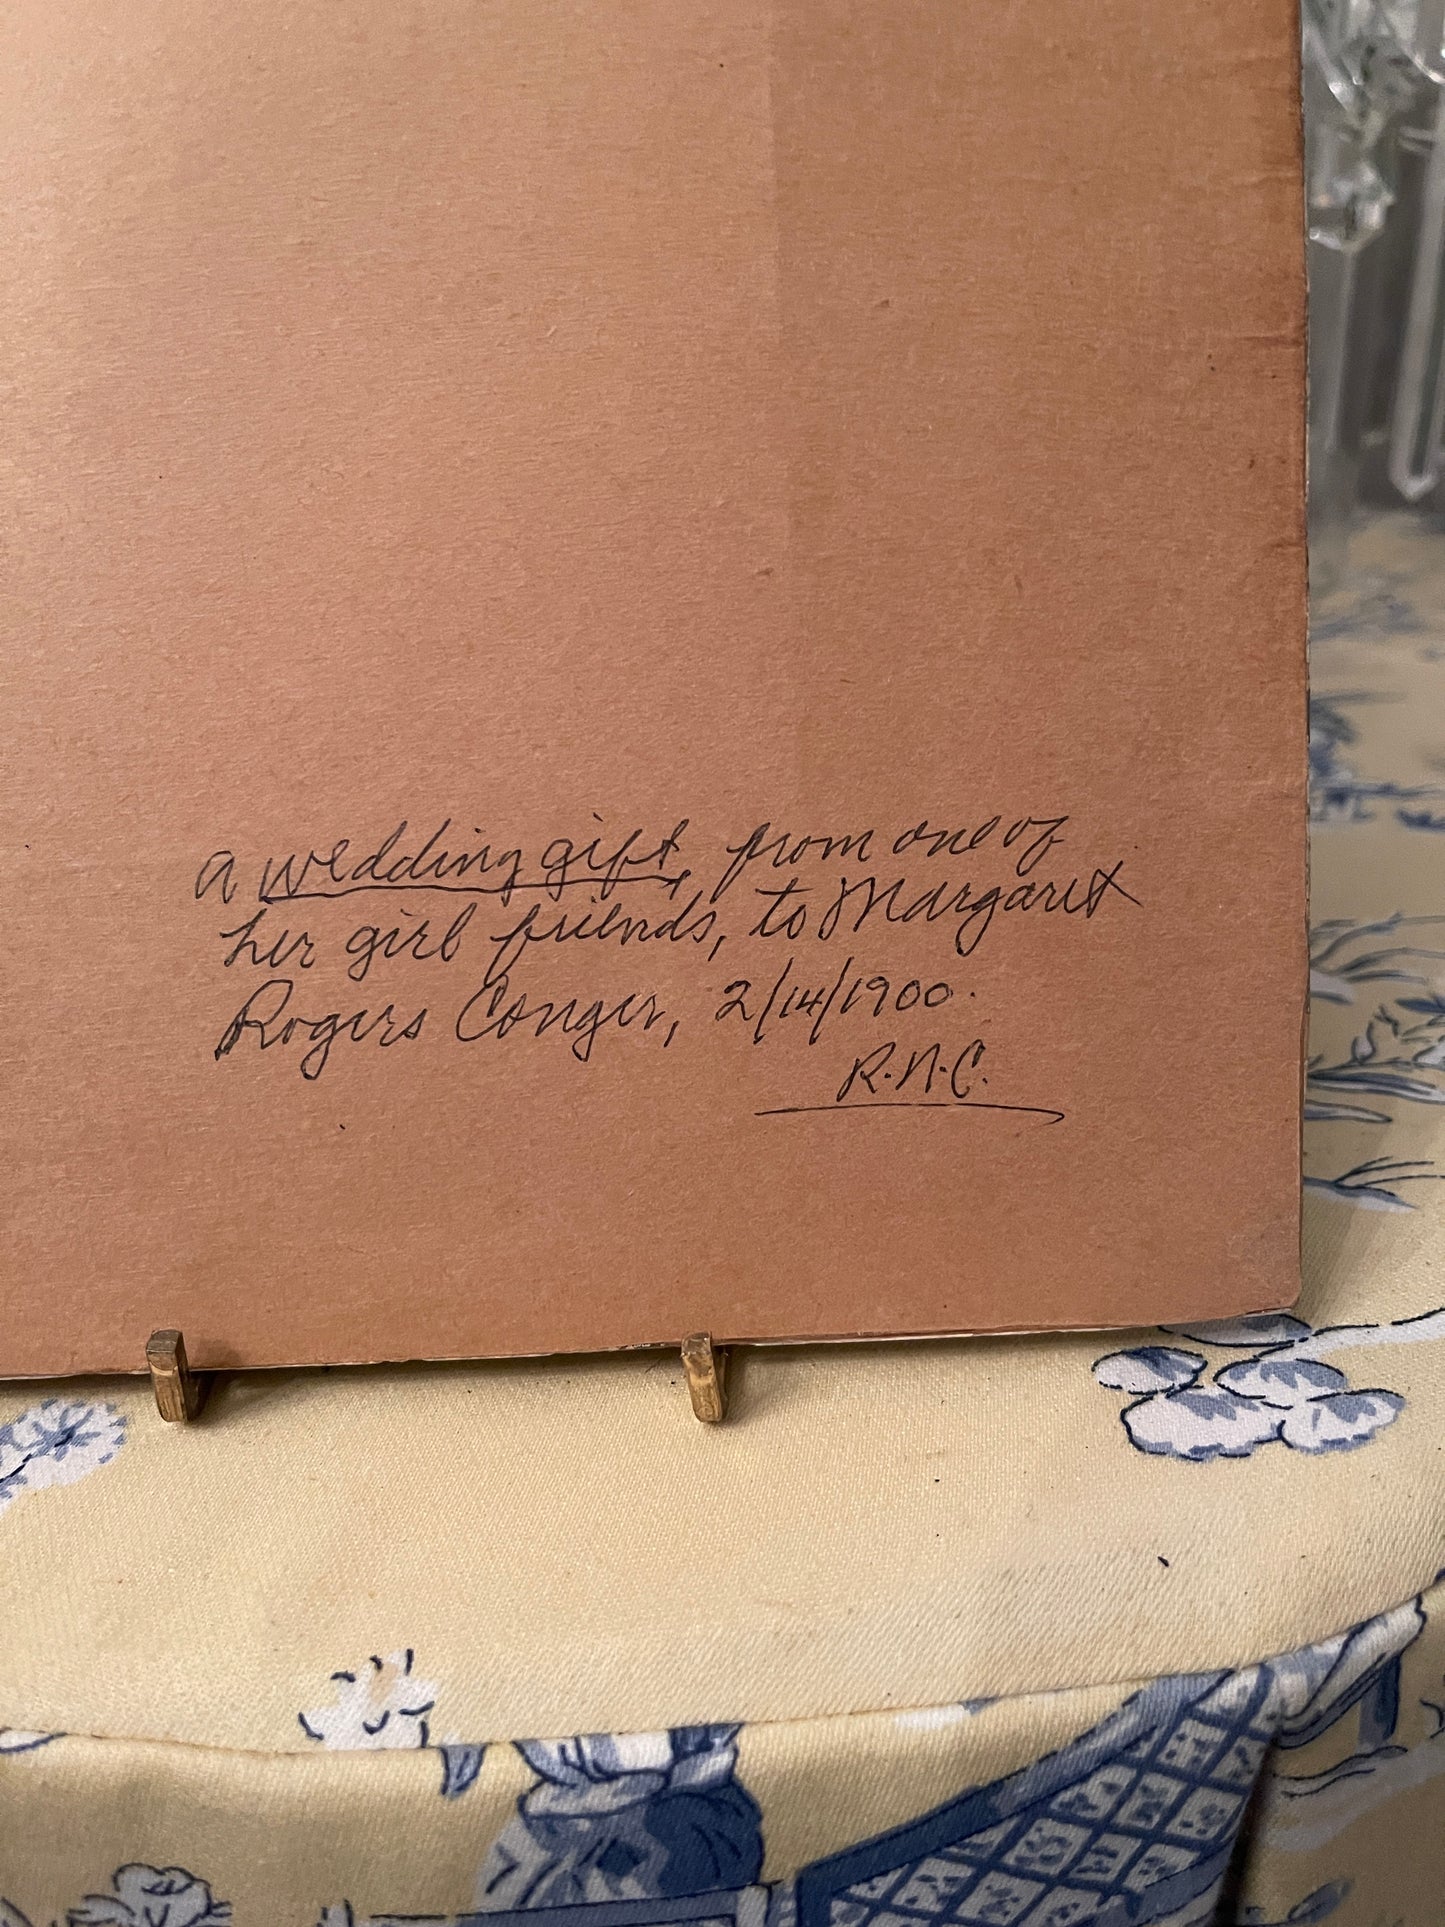 a wedding gift, from one of
her girl friends, to Margaret
Rogers Conger, 2/14/1900.
R.N.C.